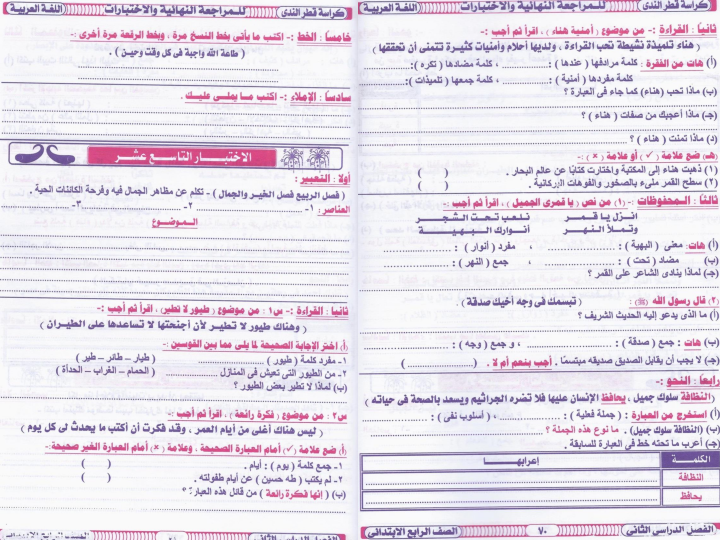 كراسة قطر الندى
للمراجعة النهائية والاختبارات
اللغة العربية
ثانيا : القراءة :- من موضوع ( أمنية هناء ) ، اقرأ ثم أجب :-
( هناء تلميذة نشيطة تحب القراءة ، ولديها أحلام وأمنيات كثيرة تتمنى أن تحققها )
(أ) هات من الفقرة : كلمة مرادفها ( عندها ) : .......... ، كلمة مضادها ( تكره ): ..........
كلمة مفردها ( أمنية ) : .......... ، كلمة جمعها ( تلميذات ): ..........
(ب) ماذا تحب (هناء) كما جاء فى العبارة ؟
(جـ) ماذا أعجبك من صفات ( هناء ) ؟
(د) ماذا تمنت ( هناء ) ؟
(هـ) ضع علامة ( ✓ ) أو علامة ( × ) :-
(١) ذهبت هناء إلى المكتبة واختارت كتابًا عن عالم البحار . ( )
(٢) سطح القمر ملىء بالصخور والفوهات الأركانية . ( )
ثالثا : المحفوظات :- (١) من نص ( يا قمرى الجميل ) ، اقرأ ثم أجب :-
انزل يا قمر نلعب تحت الشجر
وتملأ النهر أنوارك البهية
(أ) هات: معنى ( البهية ) : .......... ، مفرد ( أنوار ) : ..........
(ب) مضاد ( تحت ) : .......... ، جمع ( النهر ) : ..........
(جـ) لماذا ينادى الشاعر على القمر ؟
(٢) قال رسول الله (ﷺ) : ( تبسمك فى وجه أخيك صدقة ) .
(أ) ما الذى يدعو إليه الحديث الشريف ؟
(ب) هات : جمع ( صدقة ) : .......... ، و جمع ( وجه ) : ..........
(جـ) لا يجب أن يقابل الصديق صديقه مبتسمًا . أجب بنعم أم لا . ( .......... )
رابعا : النحو :-
( النظافة سلوك جميل ، يحافظ الإنسان عليها فلا تضره الجراثيم ويسعد بالصحة فى حياته )
(أ) استخرج من العبارة : ( جملة فعلية ) : .......... ، ( أسلوب نفى ) : ..........
(ب) (النظافة سلوك جميل) . ما نوع هذه الجملة ؟
(جـ) أعرب ما تحته خط فى العبارة للسابقة .
الكلمة إعرابها
النظافة
يحافظ
الفصل الدراسى الثانى
٧٠
الصف الرابع الابتدائى
كراسة قطر الندى
للمراجعة النهائية والاختبارات
اللغة العربية
خامسا : الخط :- اكتب ما يأتى بخط النسخ مرة ، وبخط الرقعة مرة أخرى :-
( طاعة الله واجبة فى كل وقت وحين ) .
سادسا : الإملاء :- اكتب ما يملى عليك .
الاختبار التاسع عشر
أولا : التعبير :
( فصل الربيع فصل الخير والجمال ) - تكلم عن مظاهر الجمال فيه وفرحة الكائنات الحية .
العناصر : ١- .......... ٢- .......... ٣- ..........
الموضوع
ثانيا : القراءة :- س١ : من موضوع ( طيور لا تطير) ، اقرأ ثم أجب :-
( وهناك طيور لا تطير لأن أجنحتها لا تساعدها على الطيران )
(أ) اختر الإجابة الصحيحة لما يلى مما بين القوسين :-
١- مفرد كلمة ( طيور ) .......... ( طيار – طائر – طير )
٢- من الطيور التى تعيش فى المنازل .......... ( الحمام – الغراب – الحدأة )
(ب) لماذا لا تطير بعض الطيور ؟
س٢ : من موضوع ( فكرة رائعة ) ، اقرأ ثم أجب :-
( ليس هناك أغلى من أيام العمر ، وقد فكرت أن أكتب ما يحدث لى كل يوم )
(أ) ضع علامة ( ✓ ) أمام العبارة الصحيحة ، وعلامة ( × ) أمام العبارة الغير صحيحة:-
١- جمع كلمة ( يوم ) : أيام . ( )
٢- لم يكتب ( طه حسين ) عن أيام طفولته . ( )
(ب) ( إنها فكرة رائعة ) من قائل هذه العبارة ؟
الفصل الدراسى الثانى
الصف الرابع الابتدائى